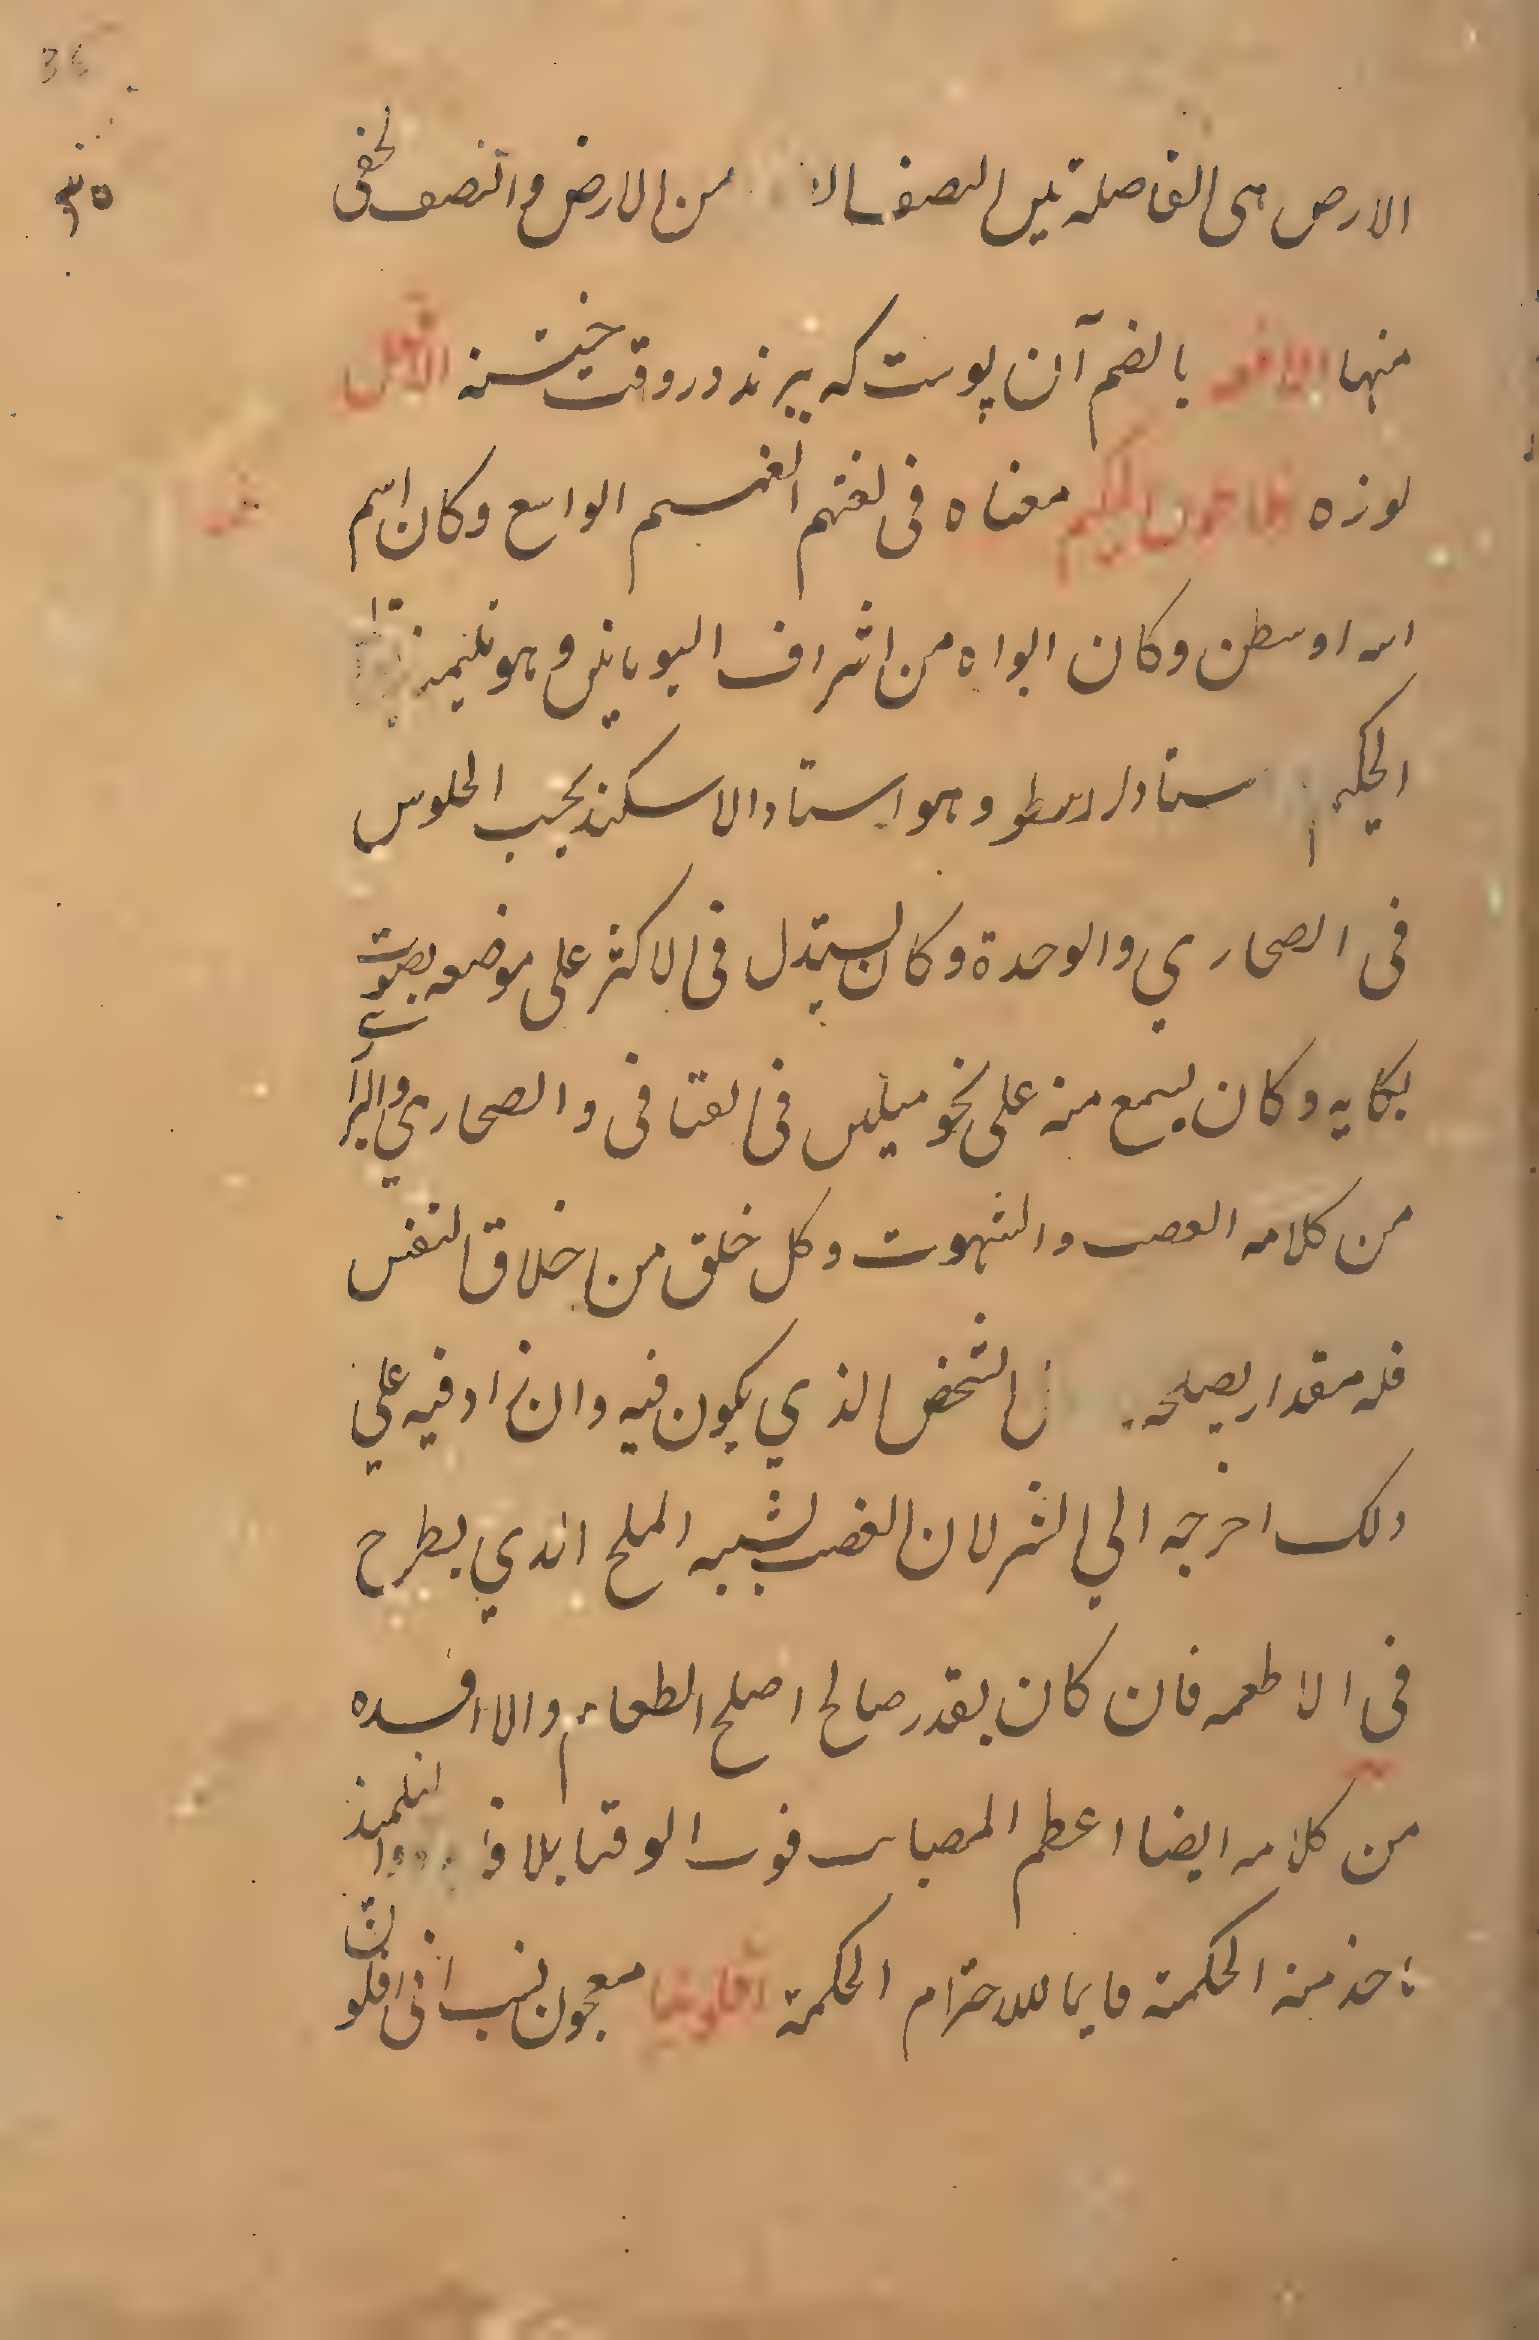 36
٣٥
الارض هى الفاصلة بين النصف الا من الارض والنصف الخفى
منها بالضم آن پوست كه ببرند در وقت ختنه
لوزه الحكيم معناه فى لغتهم الغميسم الواسع وكان اسم
اسه اوسطن وكان ابواه من اشراف اليونانين وهو تلميذ
الحكيم ستاد ارسطو وهو استاد الاسكندر يحب الجلوس
فى الصحاري والوحدة وكان يستدل فى الاكثر على موضعه بصوت
بكايه وكان يسمع منه على نحو ميلين فى الفيافى والصحاري والبرا
من كلامه الغضب والشهوت وكل خلق من اخلاق النفس
فله مقدار يصلحه الشخص الذي يكون فيه وان زاد فيه علي
ذلك اخرجه الي الشر لان الغضب يشبه الملح الذي يطرح
فى الاطعمه فان كان بقدر صالح اصلح الطعام والا افسده
من كلامه ايضا اعظم المصايب فوت الوقت بلا التلميذ
ياخذ منه الحكمة قايما للاحترام الحكمة افلونيا معجون ينسب الى افلون